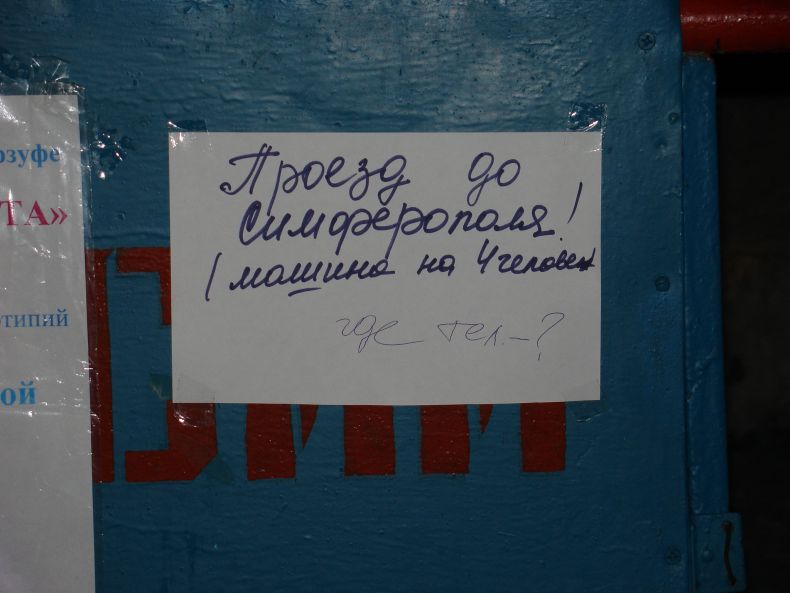 рзуфе
ТА»
отипий
ой
Проезд до
Симферополя!
(машина на 4 человек
где тел.-?